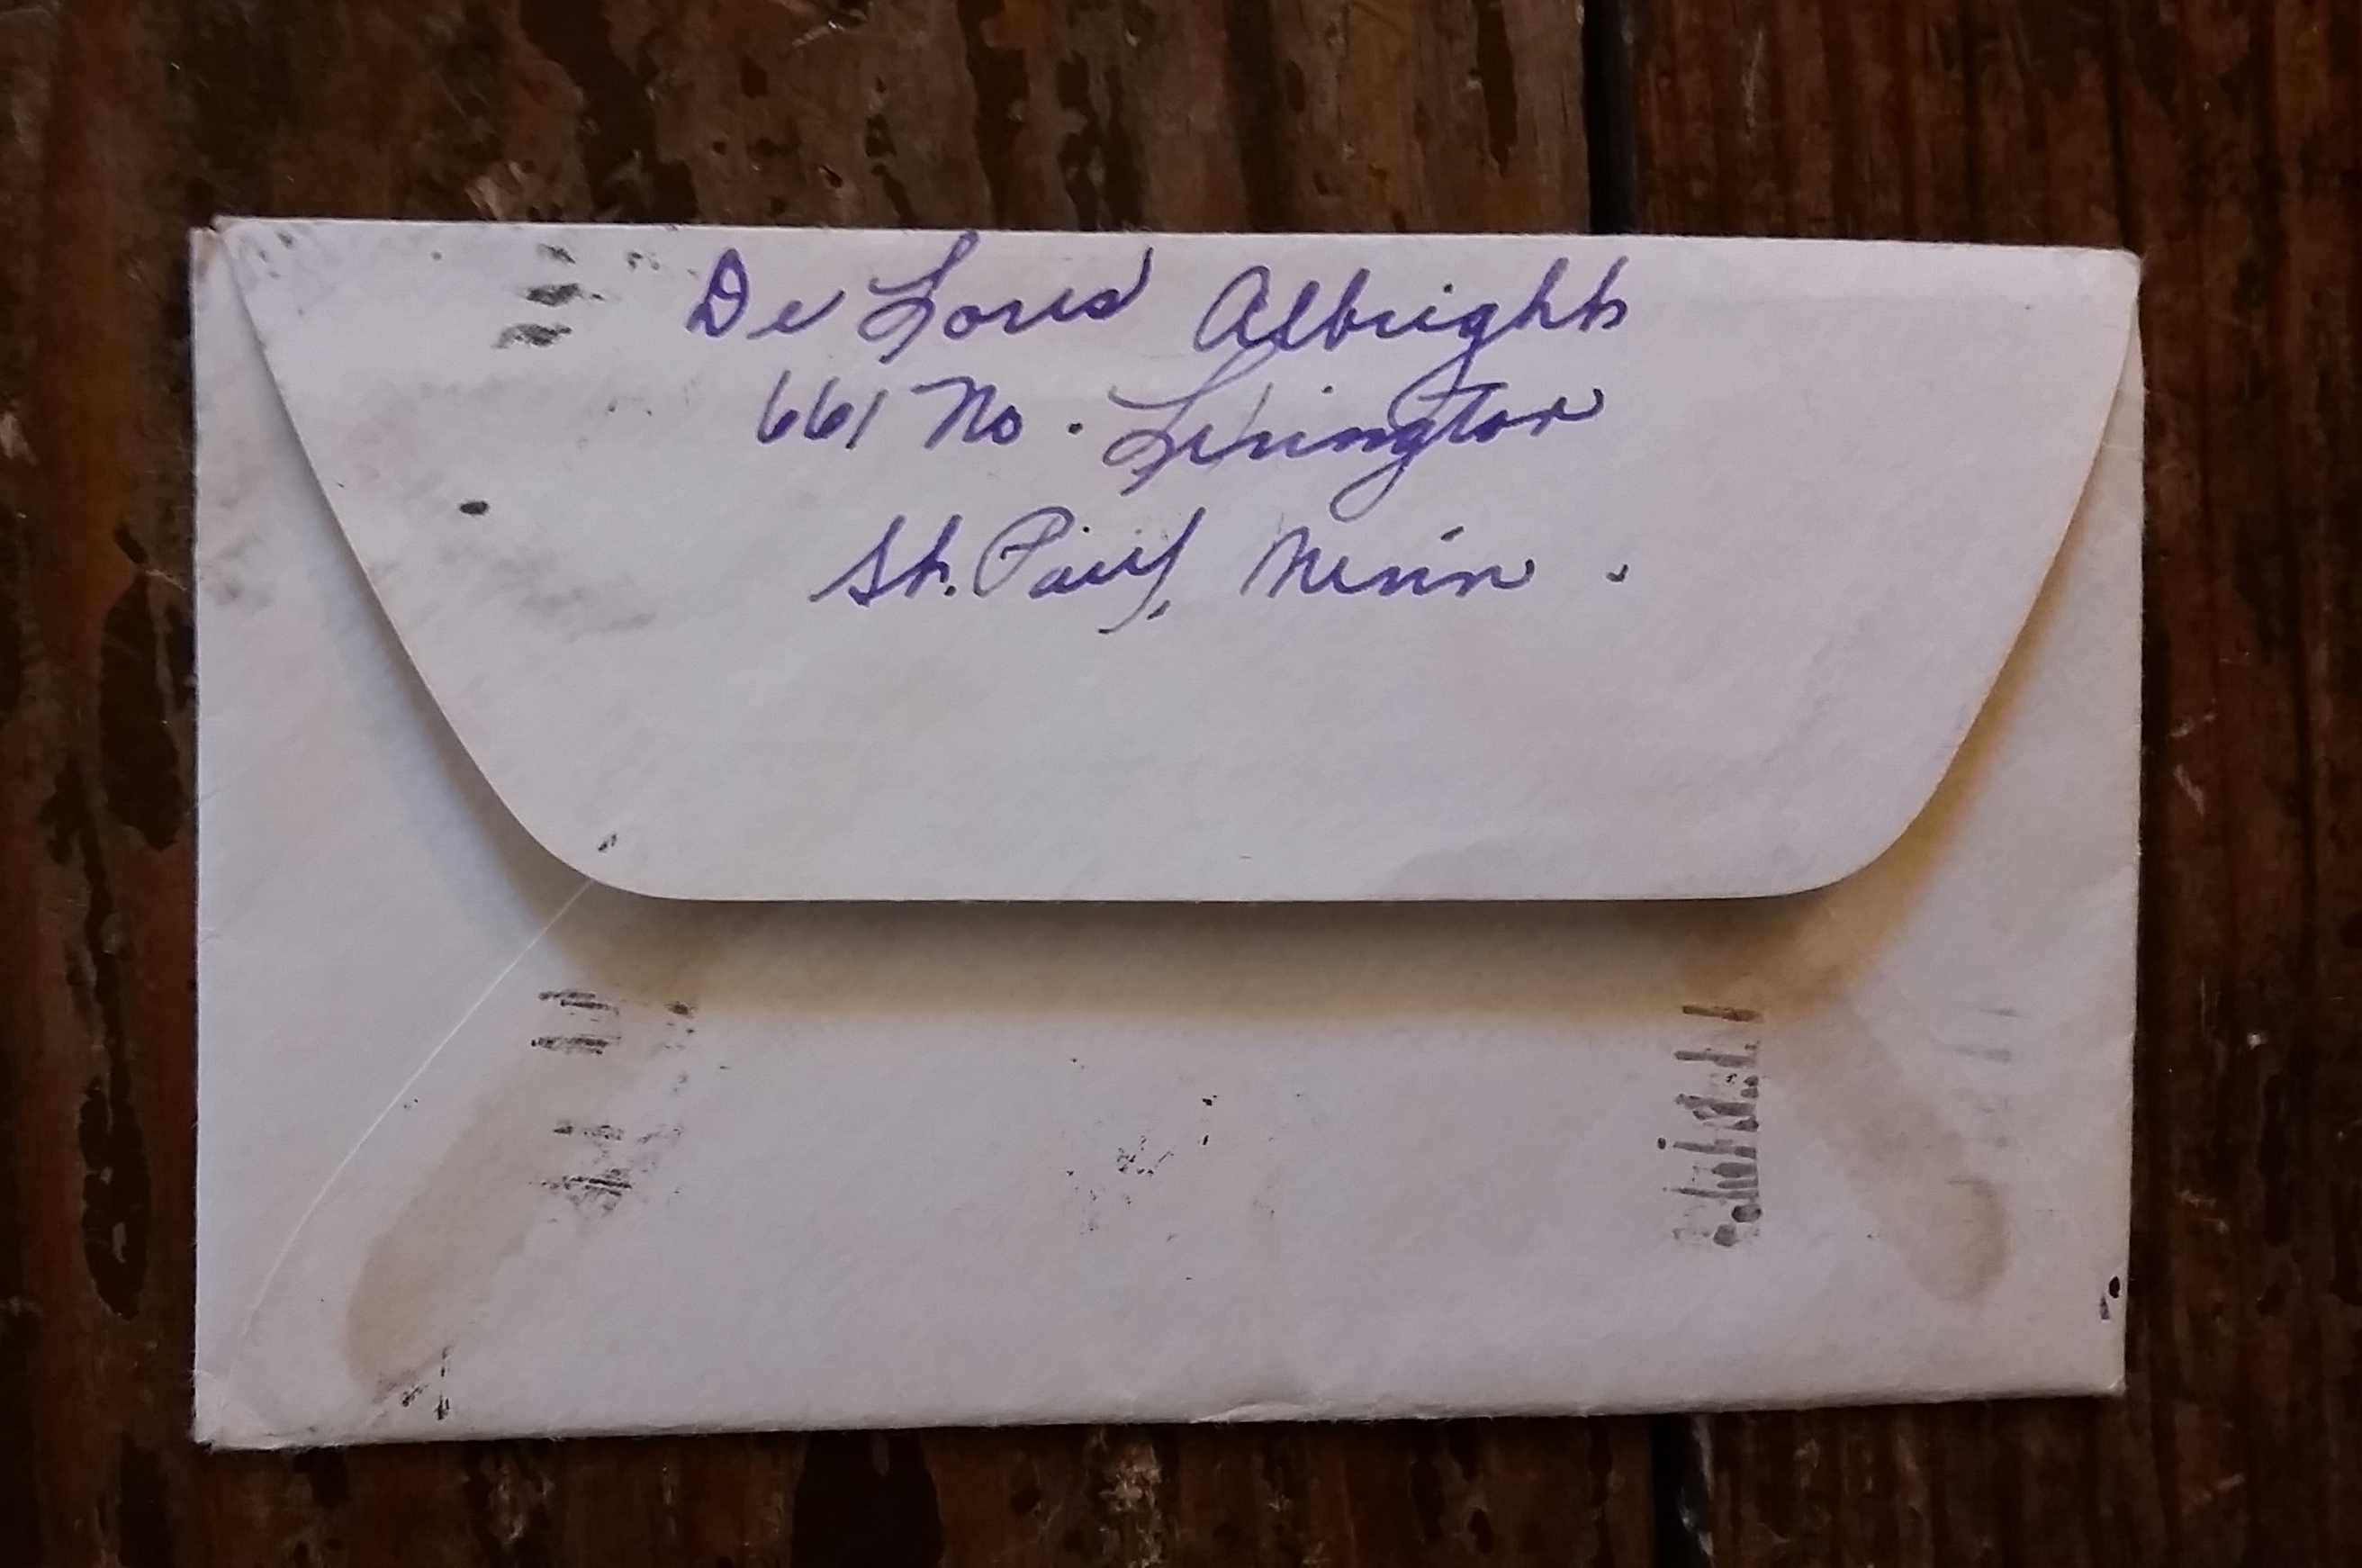 De Loris Albright
661 No. Lexington
St. Paul, Minn.